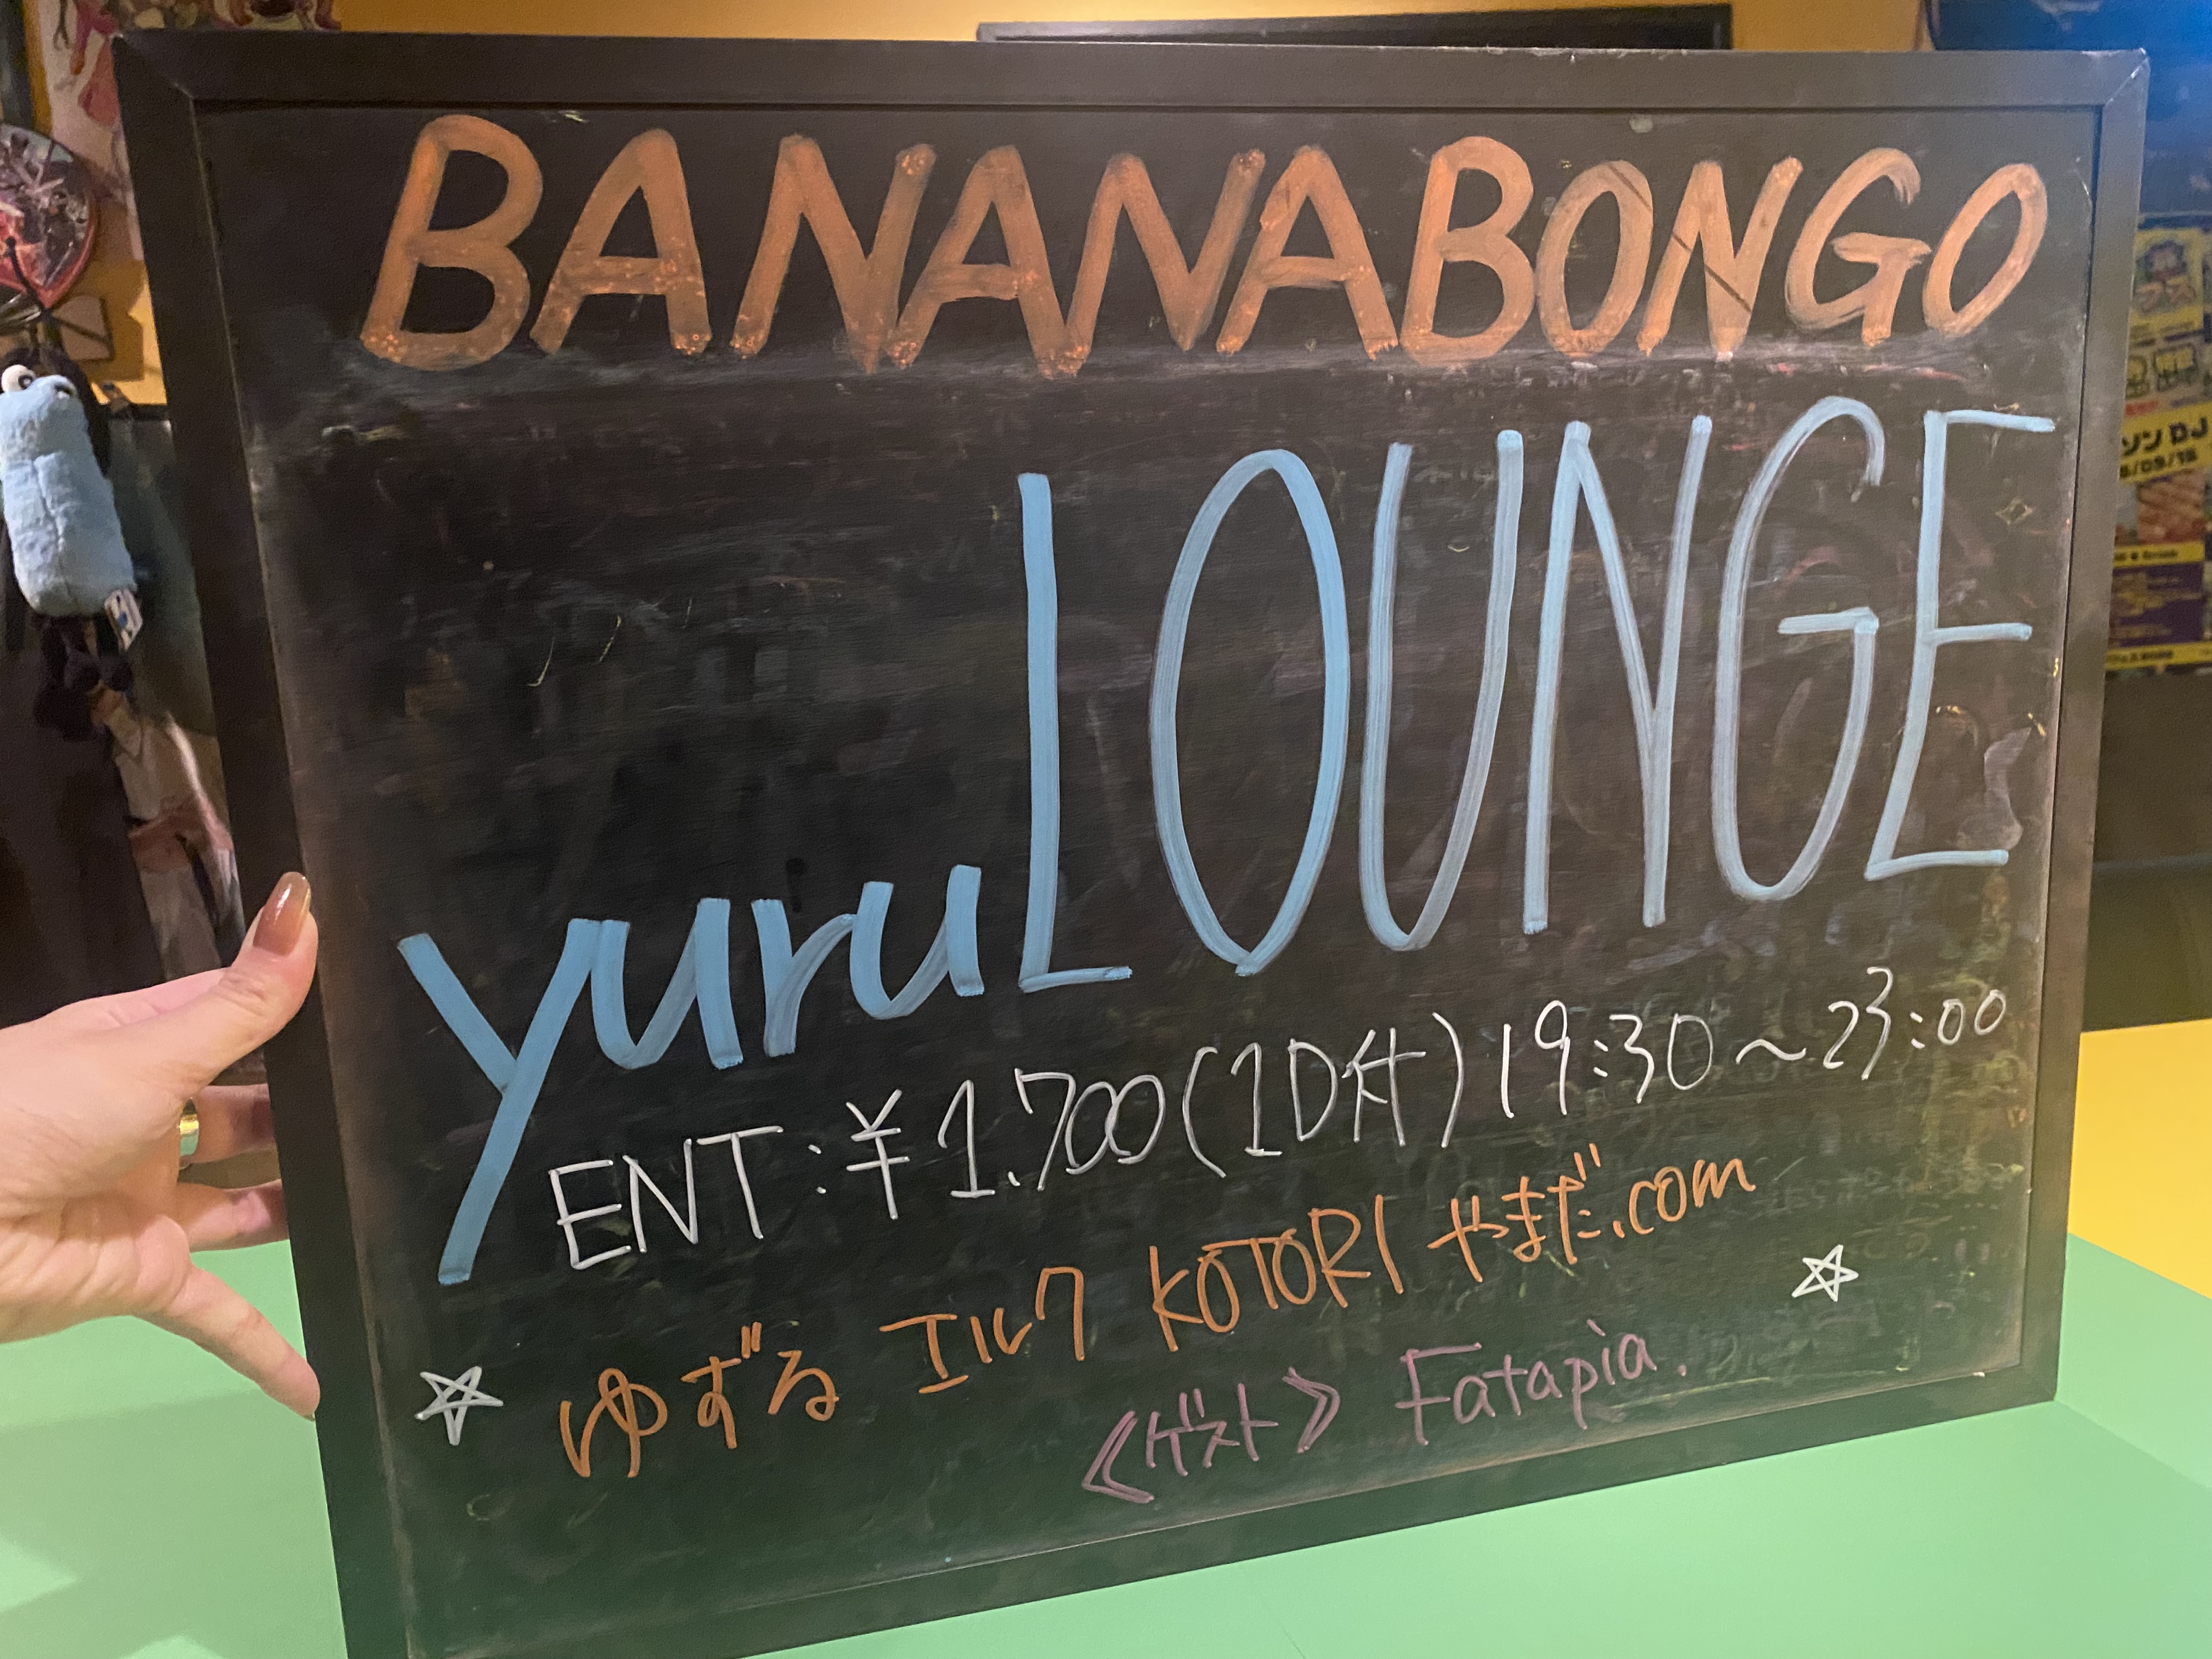 BANANABONGO
yuruLOUNGE
ENT:¥1.700(1D付)19:30~23:00
☆ ゆずる エルク KOTORI やまだ.com ☆
《ゲスト》 Fatapia.
ソン DJ
/09/18